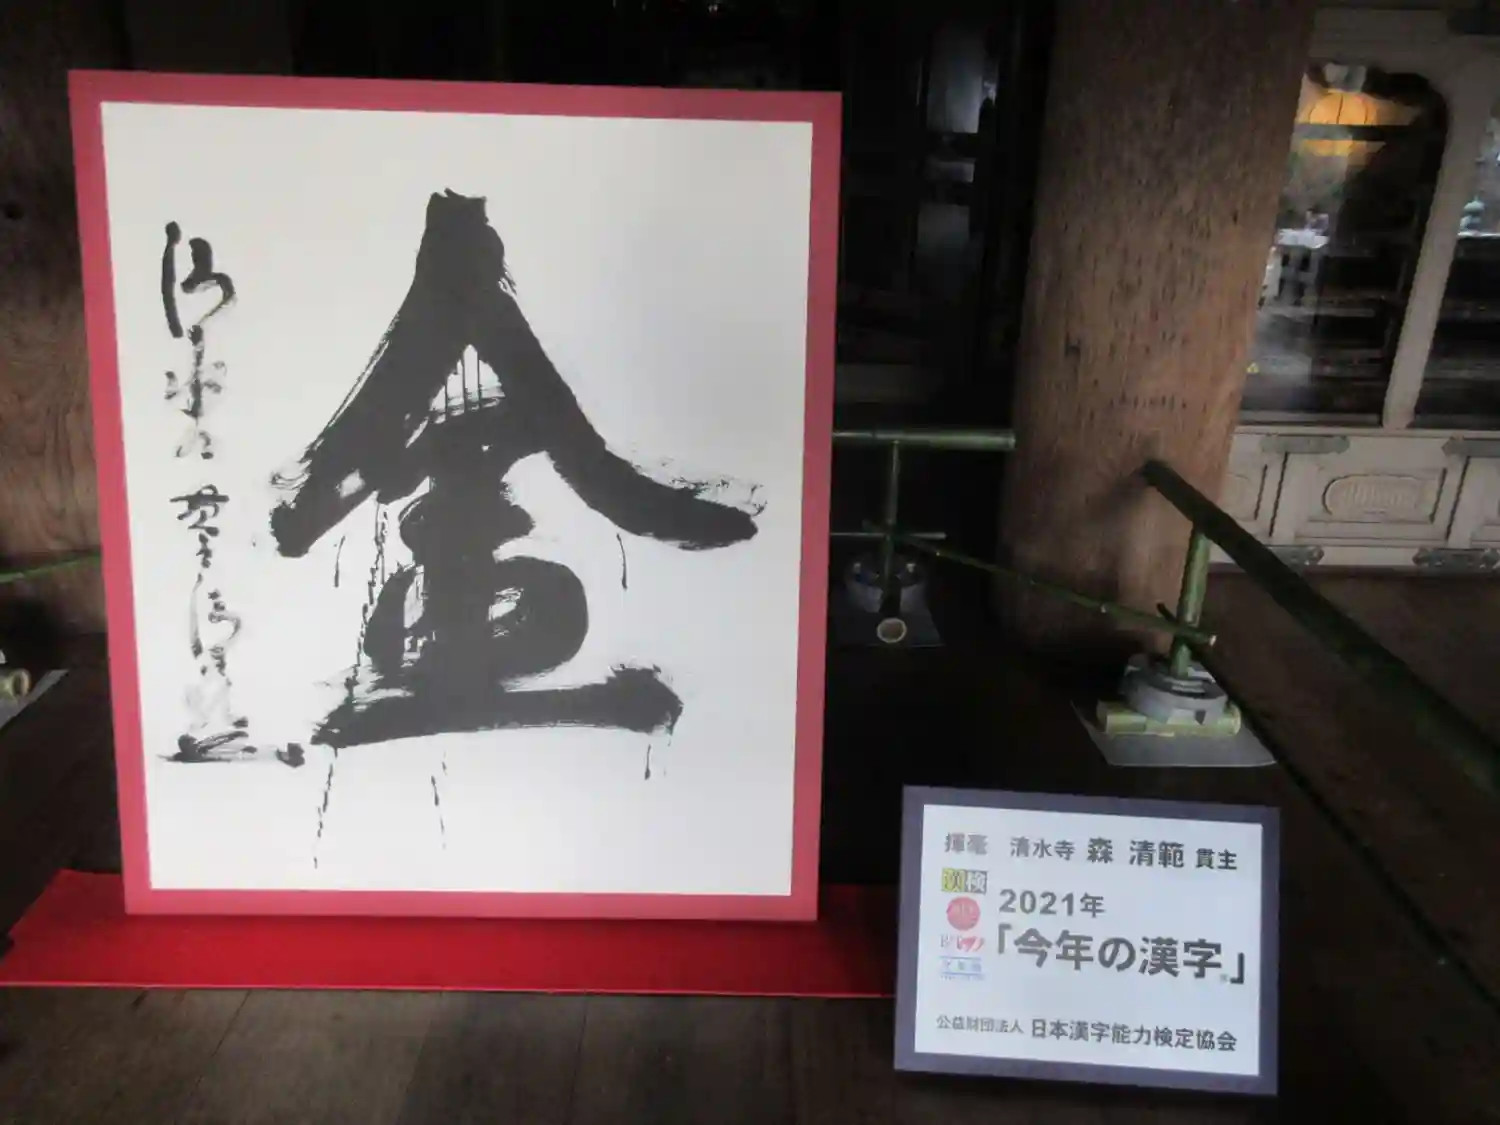 金
清水寺
揮毫 清水寺 森 清範 貫主
漢検
2021年
「今年の漢字®」
公益財団法人 日本漢字能力検定協会